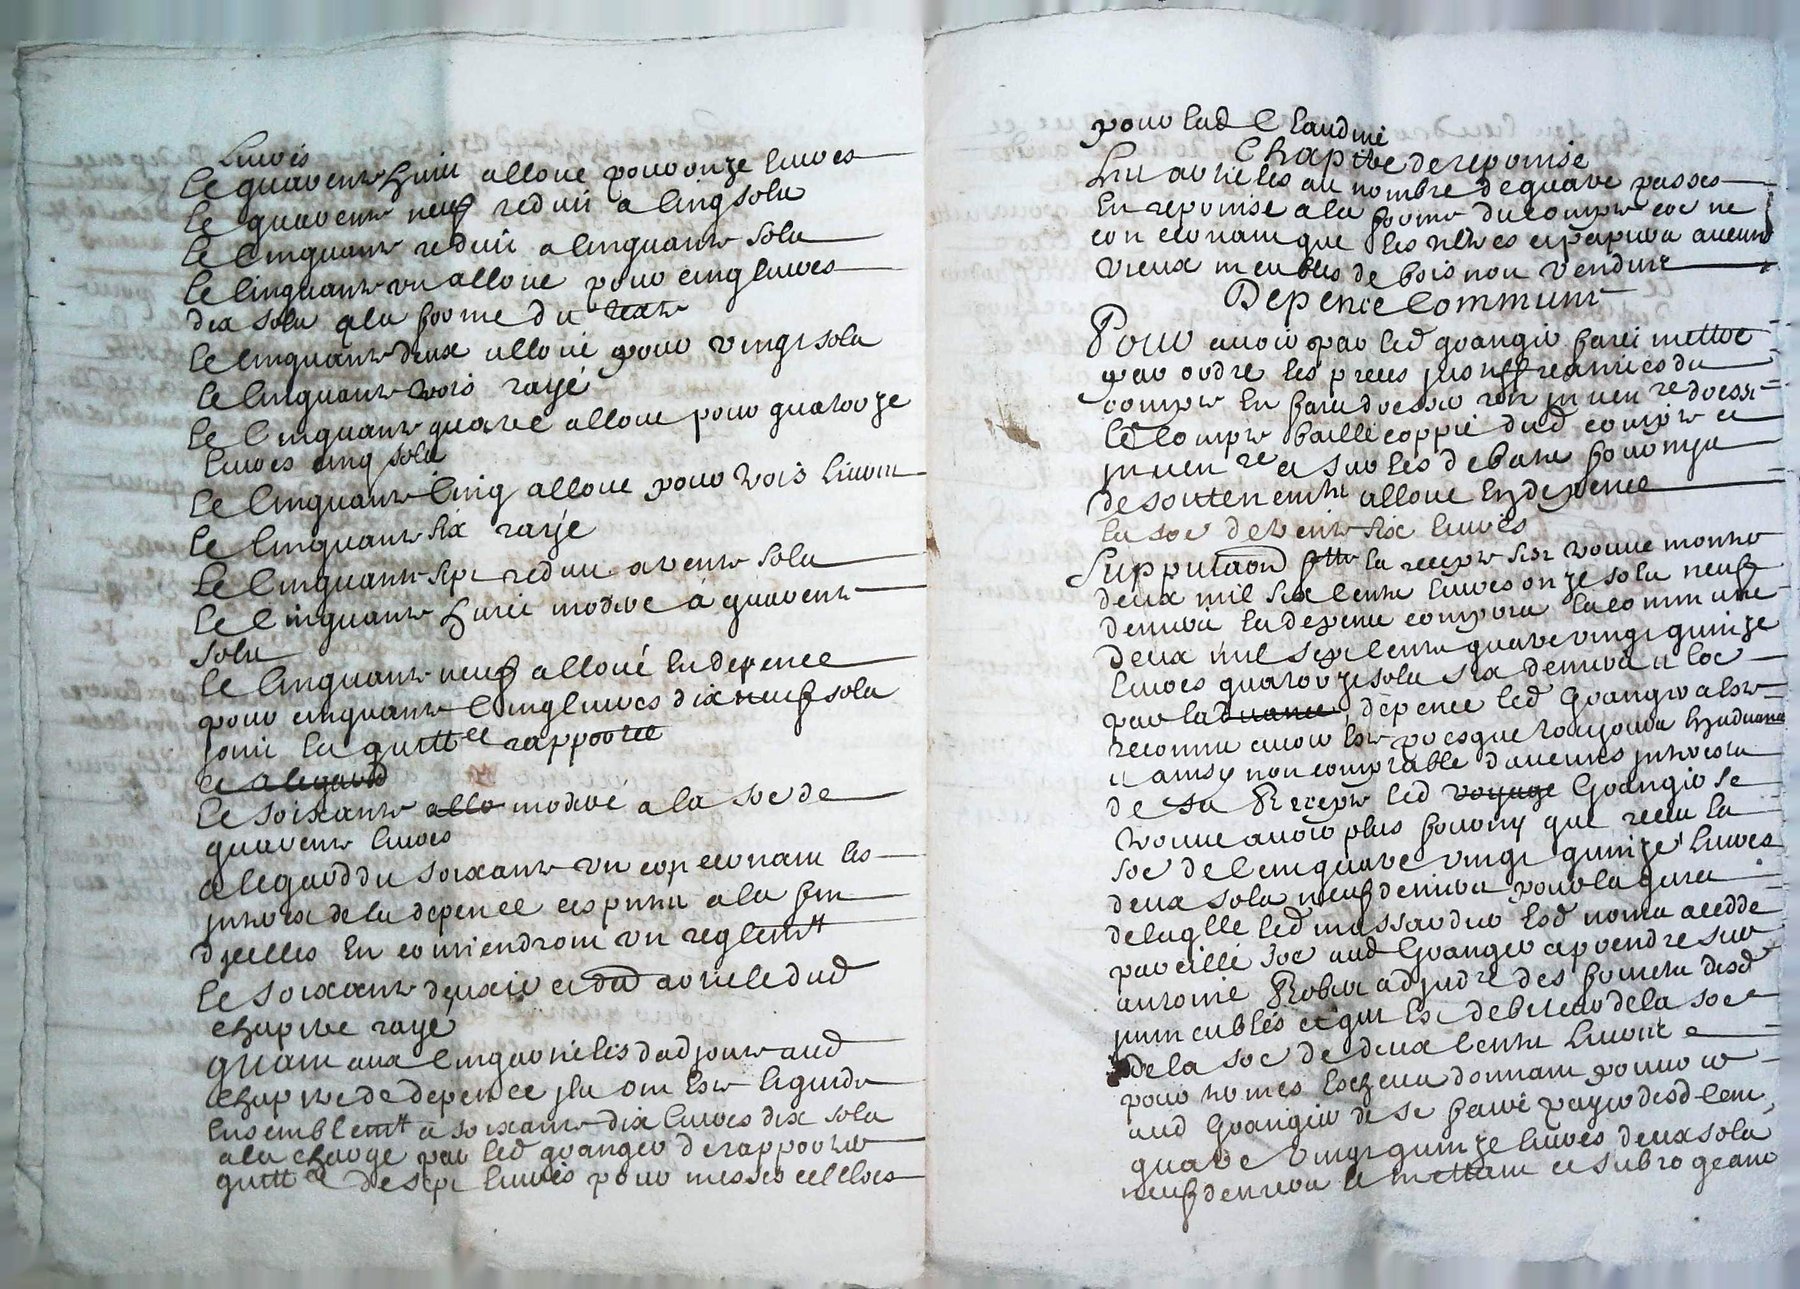 Livres
Le quarente huit alloue pour onze livres
Le quarente neuf reduit a cinq sols
Le cinquante reduit a cinquante sols
Le cinquante un alloue pour cinq livres
dix sols a la forme du texte
Le cinquante deux alloué pour vingt sols
Le cinquante trois rayé
Le cinquante quatre alloue pour quatorze
livres cinq sols
Le cinquante cinq alloue pour trois livres
Le cinquante six rayé
Le cinquante sept reduit a trente sols
Le cinquante huit moderé à quarente
sols
Le cinquante neuf alloué en depence
pour cinquante cinq livres dix neuf sols
joint la quittce rapportée
Et a legard
Le soixante allo moderé a la soe de
quarente livres
a legard du soixante un concernant les
interets de la depence est puni a la fin
dicelles en conviendront un reglemt
Le soixante deuxie et dud article dud
chapitre rayé
quant aux cinq articles dadjoute aud
chapitre de depence ils ont este liquidé
ensemblemt a soixante dix livres dix sols
a la charge par led grangier de rapporter
quittce de sept livres pour messes cellebres
pour lad Claudine
Chapitre de reprise
Les articles au nombre de quatre passes
en reprise a la forme du compte car ne
concernant que les tiltres et papiers aucuns
vieux meubles de bois non vendus
Depence Commune
Pour avoir par led grangier fait mettre
par ordre les pieces justifficatives du
compte en faire dresser son inven re dresse
le compte baille coppie dud compte et
inven re et sur les debats fourny
de soutenemts alloue en depence
la soe de trente six livres
Supputaon fitte la recepte sest trouve monter
deux mil six cents livres onze sols neuf
deniers la depence compris la commune
deux mil sept cents quatre vingt quinze
livres quatorze sols six deniers et soe
par la avance depence led Grangier aiste
reconnu avoir este presque toujours en avance
et ainsy non comptable daucuns interests
de sa recepte led voyage Grangier se
trouve avoir plus fourny que receu la
soe de cent quatre vingt quinze livres
deux sols neuf deniers pour laquelle
de laqlle led massardier esd noms a cedde
pareille soe aud Grangier a prendre sur
antoine Robin adjudre des fonds desd
immeubles et qui est debiteur de la soe
de la soe de deux cents livres
pour termes escheus donnant pouvoir
aud Grangier de se faire payer desd cent
quatre vingt quinze livres deux sols
neuf deniers le mettant et subrogeant